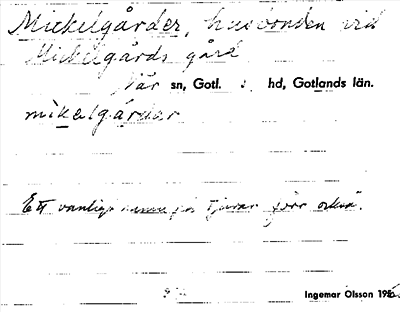 Mickelgårder, husbonden vid
Mickelgårds gård
När sn, Gotl. : hd, Gotlands län.
mikalgårdar
Ett vanligt namn på tjurar förr också.
Ingemar Olsson 195